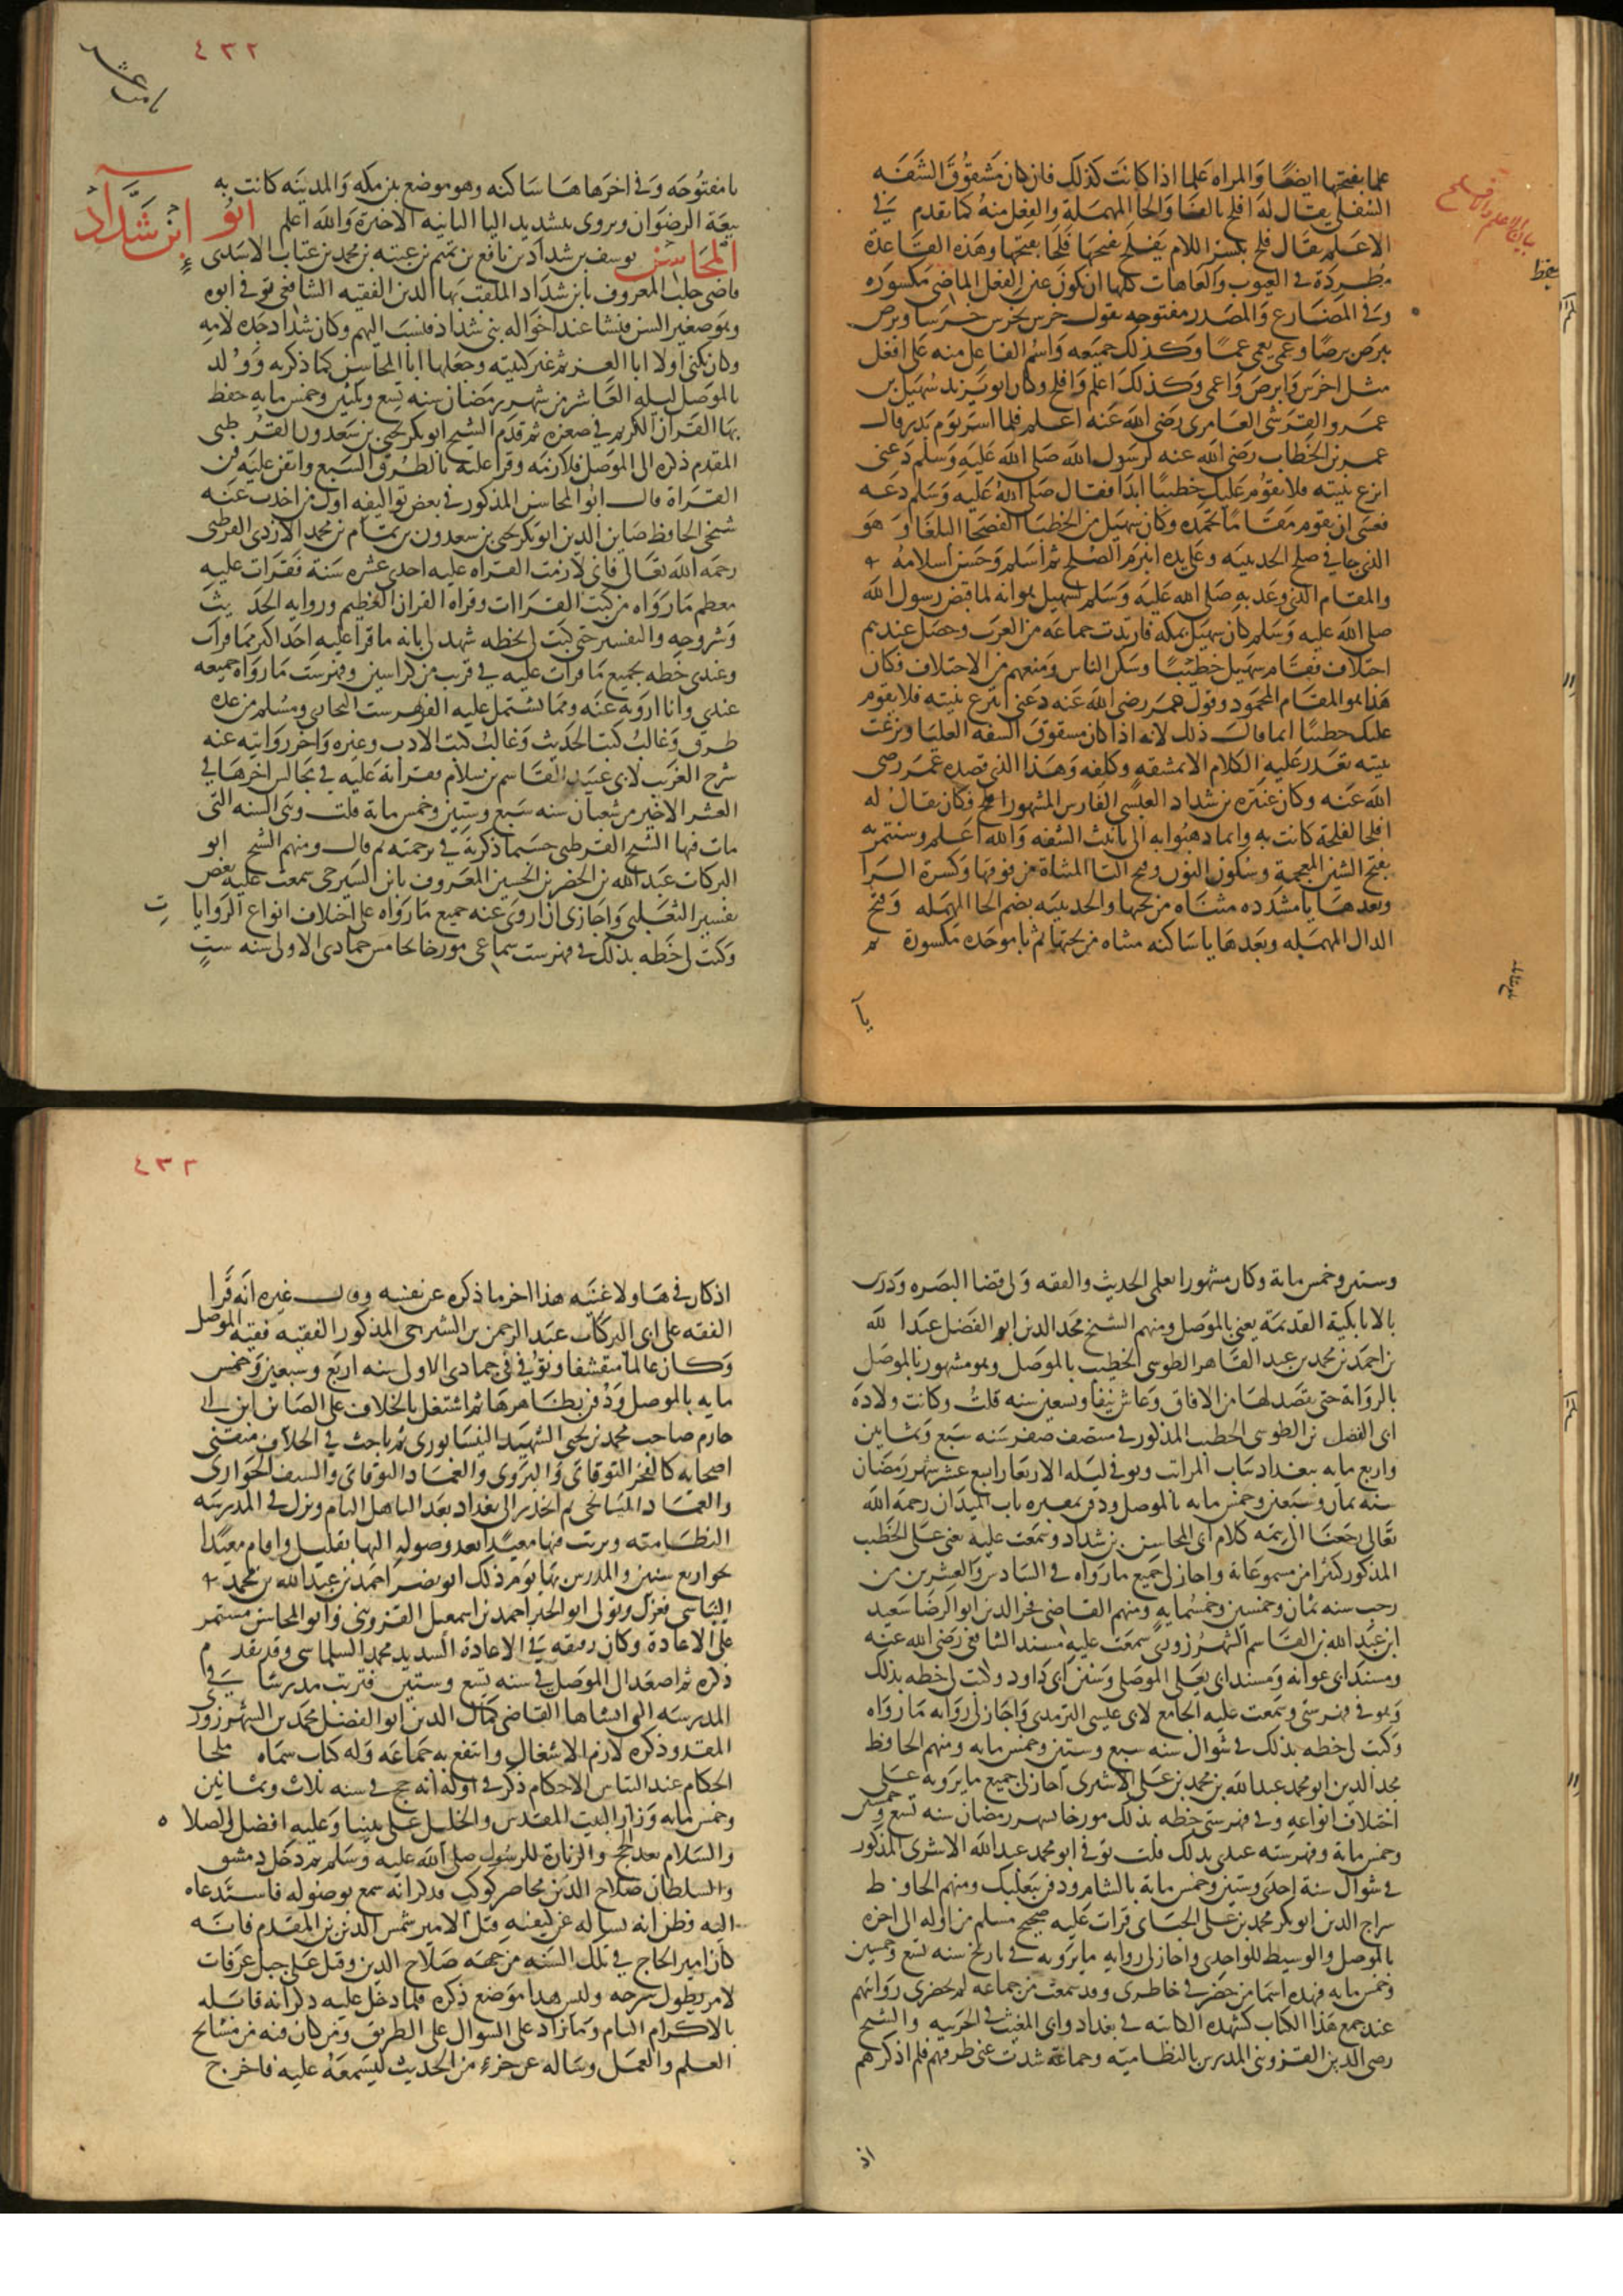 علما بفتحها ايضًا والمراه علما اذا كانت كذلك فان كان مشقوق الشفه
السفلى يقال له افلح بالفا والحا المهملة والفعل منه كما تقدم في
الاعلم يقال فلح بكسر اللام يفلح بفتحها فلحا بفتحها وهذه القاعدة
مطردة في العيوب والعاهات كلها ان يكون عين الفعل الماضي مكسوره
وفي المضارع والمصدر مفتوحه يقول خرس يخرس خرسا وبرص
يبرص برصًا وعمى يعمى عمًا وكذلك جميعه واسم الفاعل منه على افعل
مثل اخرس وابرص واعمى وكذلك اعلم وافلح وكان ابو يزيد سهيل بن
عمرو القرشى العامرى رضى الله عنه اعلم فلما اسر يوم بدر قال
عمر بن الخطاب رضى الله عنه لرسول الله صلى الله عليه وسلم دعنى
انزع ثنيته فلا يقوم عليك خطيبًا ابدا فقال صلى الله عليه وسلم دعه
فعسى ان يقوم مقامًا تحمده وكان سهيل من الخطبا الفصحا البلغا وهو
الذى جا في صلح الحديبيه وعلى يده انبرم الصلح ثم اسلم وحسن اسلامه
والمقام الذى وعد به صلى الله عليه وسلم لسهيل هو انه لما قبض رسول الله
صلى الله عليه وسلم كان سهيل بمكه فارتدت جماعه من العرب وحصل عندهم
اختلاف فقام سهيل خطيبًا وسكن الناس ومنعهم من الاختلاف فكان
هذا هو المقام المحمود وقول عمر رضى الله عنه دعنى انزع ثنيته فلا يقوم
عليك خطيبًا انما قال ذلك لانه اذا كان مشقوق الشفه العليا ونزعت
ثنيته تعذر عليه الكلام الا بمشقه وكلفه وهذا الذى قصده عمر رضى
الله عنه وكان عنتره بن شداد العبسى الفارس المشهور افلح فكان يقال له
الفلحا لفلحة كانت به وانما ذهبوا به الى تانيث الشفه والله اعلم وسنتمريه
بفتح الشين المعجمة وسكون النون وفتح التا المثناة من فوقها وكسرة الرا
وبعدها يا مشدده مثناه من تحتها والحديبيه بضم الحا المهمله وفتح
الدال المهمله وبعدها يا ساكنه مثناه من تحتها ثم با موحده مكسورة ثم
يا
٤٣٢
با مفتوحه وفي اخرها ها ساكنه وهو موضع بين مكه والمدينه كانت به
بيعة الرضوان ويروى بتشديد اليا الثانيه الاخيرة والله اعلم ابو ابن شداد
المحاسن يوسف بن شداد بن رافع بن تميم بن عتبه بن محمد بن عتاب الاسدى
قاضى حلب المعروف بابن شداد الملقب بها الدين الفقيه الشافعى توفى ابوه
وهو صغير السن فنشا عند اخواله بنى شداد فنسب اليهم وكان شداد جده لامه
وكان يكنى اولا ابا العز ثم غير كنيته وجعلها ابا المحاسن كما ذكره وولد
بالموصل ليله العاشر من شهر رمضان سنه تسع وثلثين وخمس مايه حفظ
بها القران الكريم في صغره ثم قدم الشيخ ابو بكر يحيى بن سعدون القرطبى
المقدم ذكره الى الموصل فلازمه وقرا عليه بالطرق السبع واتقن عليه فن
القراة قال ابو المحاسن المذكور في بعض تواليفه اول من اخذت عنه
شيخى الحافظ صاين الدين ابو بكر يحيى بن سعدون بن تمام بن محمد الازدى القرطبى
رحمه الله تعالى فانى لازمت القراه عليه احدى عشره سنة فقرات عليه
معظم ما رواه من كتب القراات وقراه القران العظيم وروايه الحديث
وشروحه والتفسير حتى كتب لى بخطه شهد لى بانه ما قرا عليه احد اكثر مما قرات
وعندى خطه بجميع ما قرات عليه في قريب من كراسين وفهرست ما رواه جميعه
عندي وانا ارويه عنه ومما يشتمل عليه الفهرست البخارى ومسلم من عده
طرق وغالب كتب الحديث وغالب كتب الادب وغيره واخر روايته عنه
شرح الغريب لابى عبيد القاسم بن سلام قراته عليه في مجالس اخرها في
العشر الاخير من شعبان سنه سبع وستين وخمس ماية قلت وهى السنه التى
مات فيها الشيخ القرطبى حسبما ذكرته في ترجمته ثم قال ومنهم الشيخ ابو
البركات عبد الله بن الخضر بن الحسين المعروف بابن السيرجى سمعت عليه بعض
تفسير الثعلبى واجازى ان اروى عنه جميع ما رواه على اختلاف انواع الروايات
وكتب لى خطه بذلك في فهرست سماعى مورخا بخامس جمادى الاولى سنه ست
وستين وخمس ماية وكان مشهورا بعلمى الحديث والفقه ولى قضا البصره ودرس
بالاتابكية القديمة يعنى بالموصل ومنهم الشيخ مجد الدين ابو الفضل عبد الله
بن احمد بن محمد بن عبد القاهر الطوسى الخطيب بالموصل وهو مشهور بالموصل
بالرواية حتى يقصد لها من الافاق وعاش نيفا وتسعين سنه قلت وكانت ولادة
ابى الفضل بن الطوسى الخطيب المذكور في منتصف صفر سنه سبع وثمانين
واربع مايه ببغداد بباب المراتب وتوفى ليله الاربعا رابع عشر شهر رمضان
سنه ثمان وسبعين وخمس مايه بالموصل ودفن بمقبره باب الميدان رحمه الله
تعالى رجعنا الى تتمه كلام ابى المحاسن بن شداد وسمعت عليه يعنى على الخطيب
المذكور كثيرا من مسموعاته واجاز لى جميع ما رواه في السادس والعشرين من
رجب سنه ثمان وخمسين وخمسمايه ومنهم القاضى فخر الدين ابو الرضا سعيد
ابن عبد الله بن القاسم الشهرزورى سمعت عليه مسند الشافعى رضى الله عنه
ومسند ابى عوانه ومسند ابى يعلى الموصلى وسنن ابى داود وكتب لى خطه بذلك
وهو في فهرستى وسمعت عليه الجامع لابى عيسى الترمذى واجاز لى روايه ما رواه
وكتب لى خطه بذلك في شوال سنه سبع وستين وخمس مايه ومنهم الحافظ
مجد الدين ابو محمد عبد الله بن محمد بن على الاشيرى اجاز لى جميع ما يرويه على
اختلاف انواعه وفي فهرستى خطه بذلك مورخا بشهر رمضان سنه تسع وخمسين
وخمس مايه وفهرسته عندى بذلك قلت توفى ابو محمد عبد الله الاشيرى المذكور
في شوال سنة احدى وستين وخمس ماية بالشام ودفن ببعلبك ومنهم الحافظ
سراج الدين ابو بكر محمد بن على الجيانى قرات عليه صحيح مسلم من اوله الى اخره
بالموصل والوسيط للواحدى واجاز لى روايه ما يرويه في تاريخ سنه تسع وخمسين
وخمس مايه فهذه اسما من حضر في خاطرى وقد سمعت من جماعه لم يحضرى روايتهم
عند جمع هذا الكتاب كشهده الكاتبه في بغداد وابى المغيث في الحربيه والشيخ
رضى الدين القزوينى المدرس بالنظاميه وجماعة شذت عنى طرقهم فلم اذكرهم
اذ
٤٣٣
اذ كان في هاولا غنيه هذا اخر ما ذكره عن نفسه وقال غيره انه قرا
الفقه على ابى البركات عبد الرحمن بن الشيرجى المذكور الفقيه فقيه الموصل
وكان عالما متقشفا وتوفى في جمادى الاولى سنه اربع وسبعين وخمس
مايه بالموصل ودفن بظاهرها ثم اشتغل بالخلاف على الضيا بن ابى
حازم صاحب محمد بن يحيى الشهيد النيسابورى ثم باحث في الخلاف متقنى
اصحابه كالفخر النوقانى والبروى والعماد النوقانى والسيف الخوارى
والعماد الميانجى ثم انحدر الى بغداد بعد التاهل التام ونزل في المدرسه
النظاميه وترتب فيها معيدا بعد وصوله اليها بقليل واقام معيدا
نحو اربع سنين والمدرس بها يوم ذلك ابو نصر احمد بن عبد الله بن محمد
الشاشى فعزل وتولى ابو الخير احمد بن اسمعيل القزوينى وابو المحاسن مستمر
على الاعادة وكان رفيقه في الاعادة السديد محمد السلماسى وقد تقدم
ذكره ثم اصعد الى الموصل في سنه تسع وستين فترتب مدرسا في
المدرسه التى انشاها القاضى كمال الدين ابو الفضل محمد بن الشهرزورى
المقدم ذكره لازم الاشغال وانتفع به جماعه وله كتاب سماه ملجا
الحكام عند التباس الاحكام ذكر في اوله انه حج في سنه ثلاث وثمانين
وخمس مايه وزار البيت المقدس والخليل على نبينا وعليه افضل الصلاه
والسلام بعد الحج والزيارة للرسول صلى الله عليه وسلم ثم دخل دمشق
والسلطان صلاح الدين محاصر كوكب فذكر انه سمع بوصوله فاستدعاه
اليه فظن انه يساله عن كيفيه قتل الامير شمس الدين بن المقدم فانه
كان امير الحاج في تلك السنه من جهه صلاح الدين وقتل على جبل عرفات
لامر يطول شرحه وليس هذا موضع ذكره فلما دخل عليه ذكر انه قابله
بالاكرام التام وما زاد على السوال على الطريق ومن كان فيه من مشايخ
العلم والعمل وساله عن جزء من الحديث ليسمعه عليه فاخرج